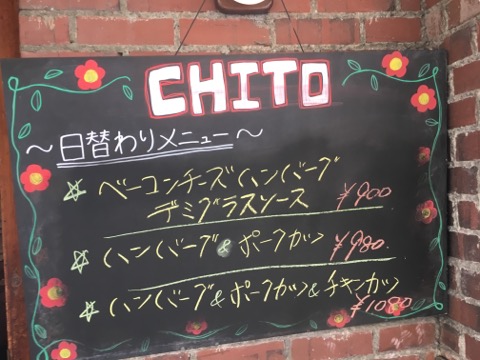 CHITO
～日替わりメニュー～
☆ ベーコンチーズハンバーグ
デミグラスソース ¥900
☆ ハンバーグ&ポークカツ ¥980
☆ ハンバーグ&ポークカツ&チキンカツ
¥1080